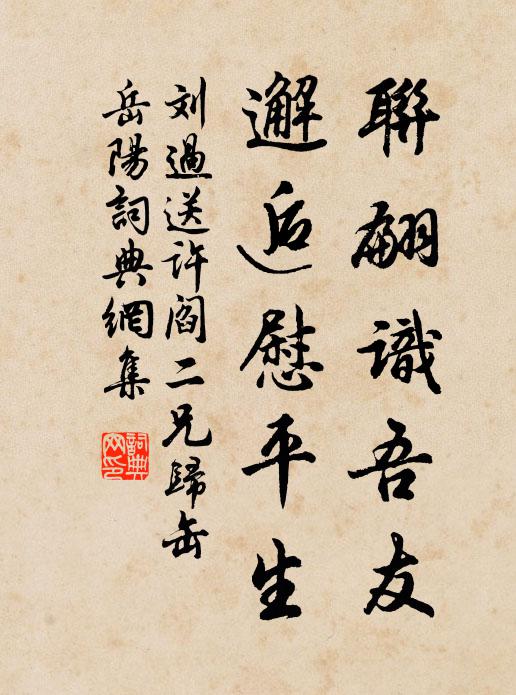 聯翩識吾友
邂逅慰平生
刘過送许阎二兄歸岳
岳陽詞典網集
詞典網印